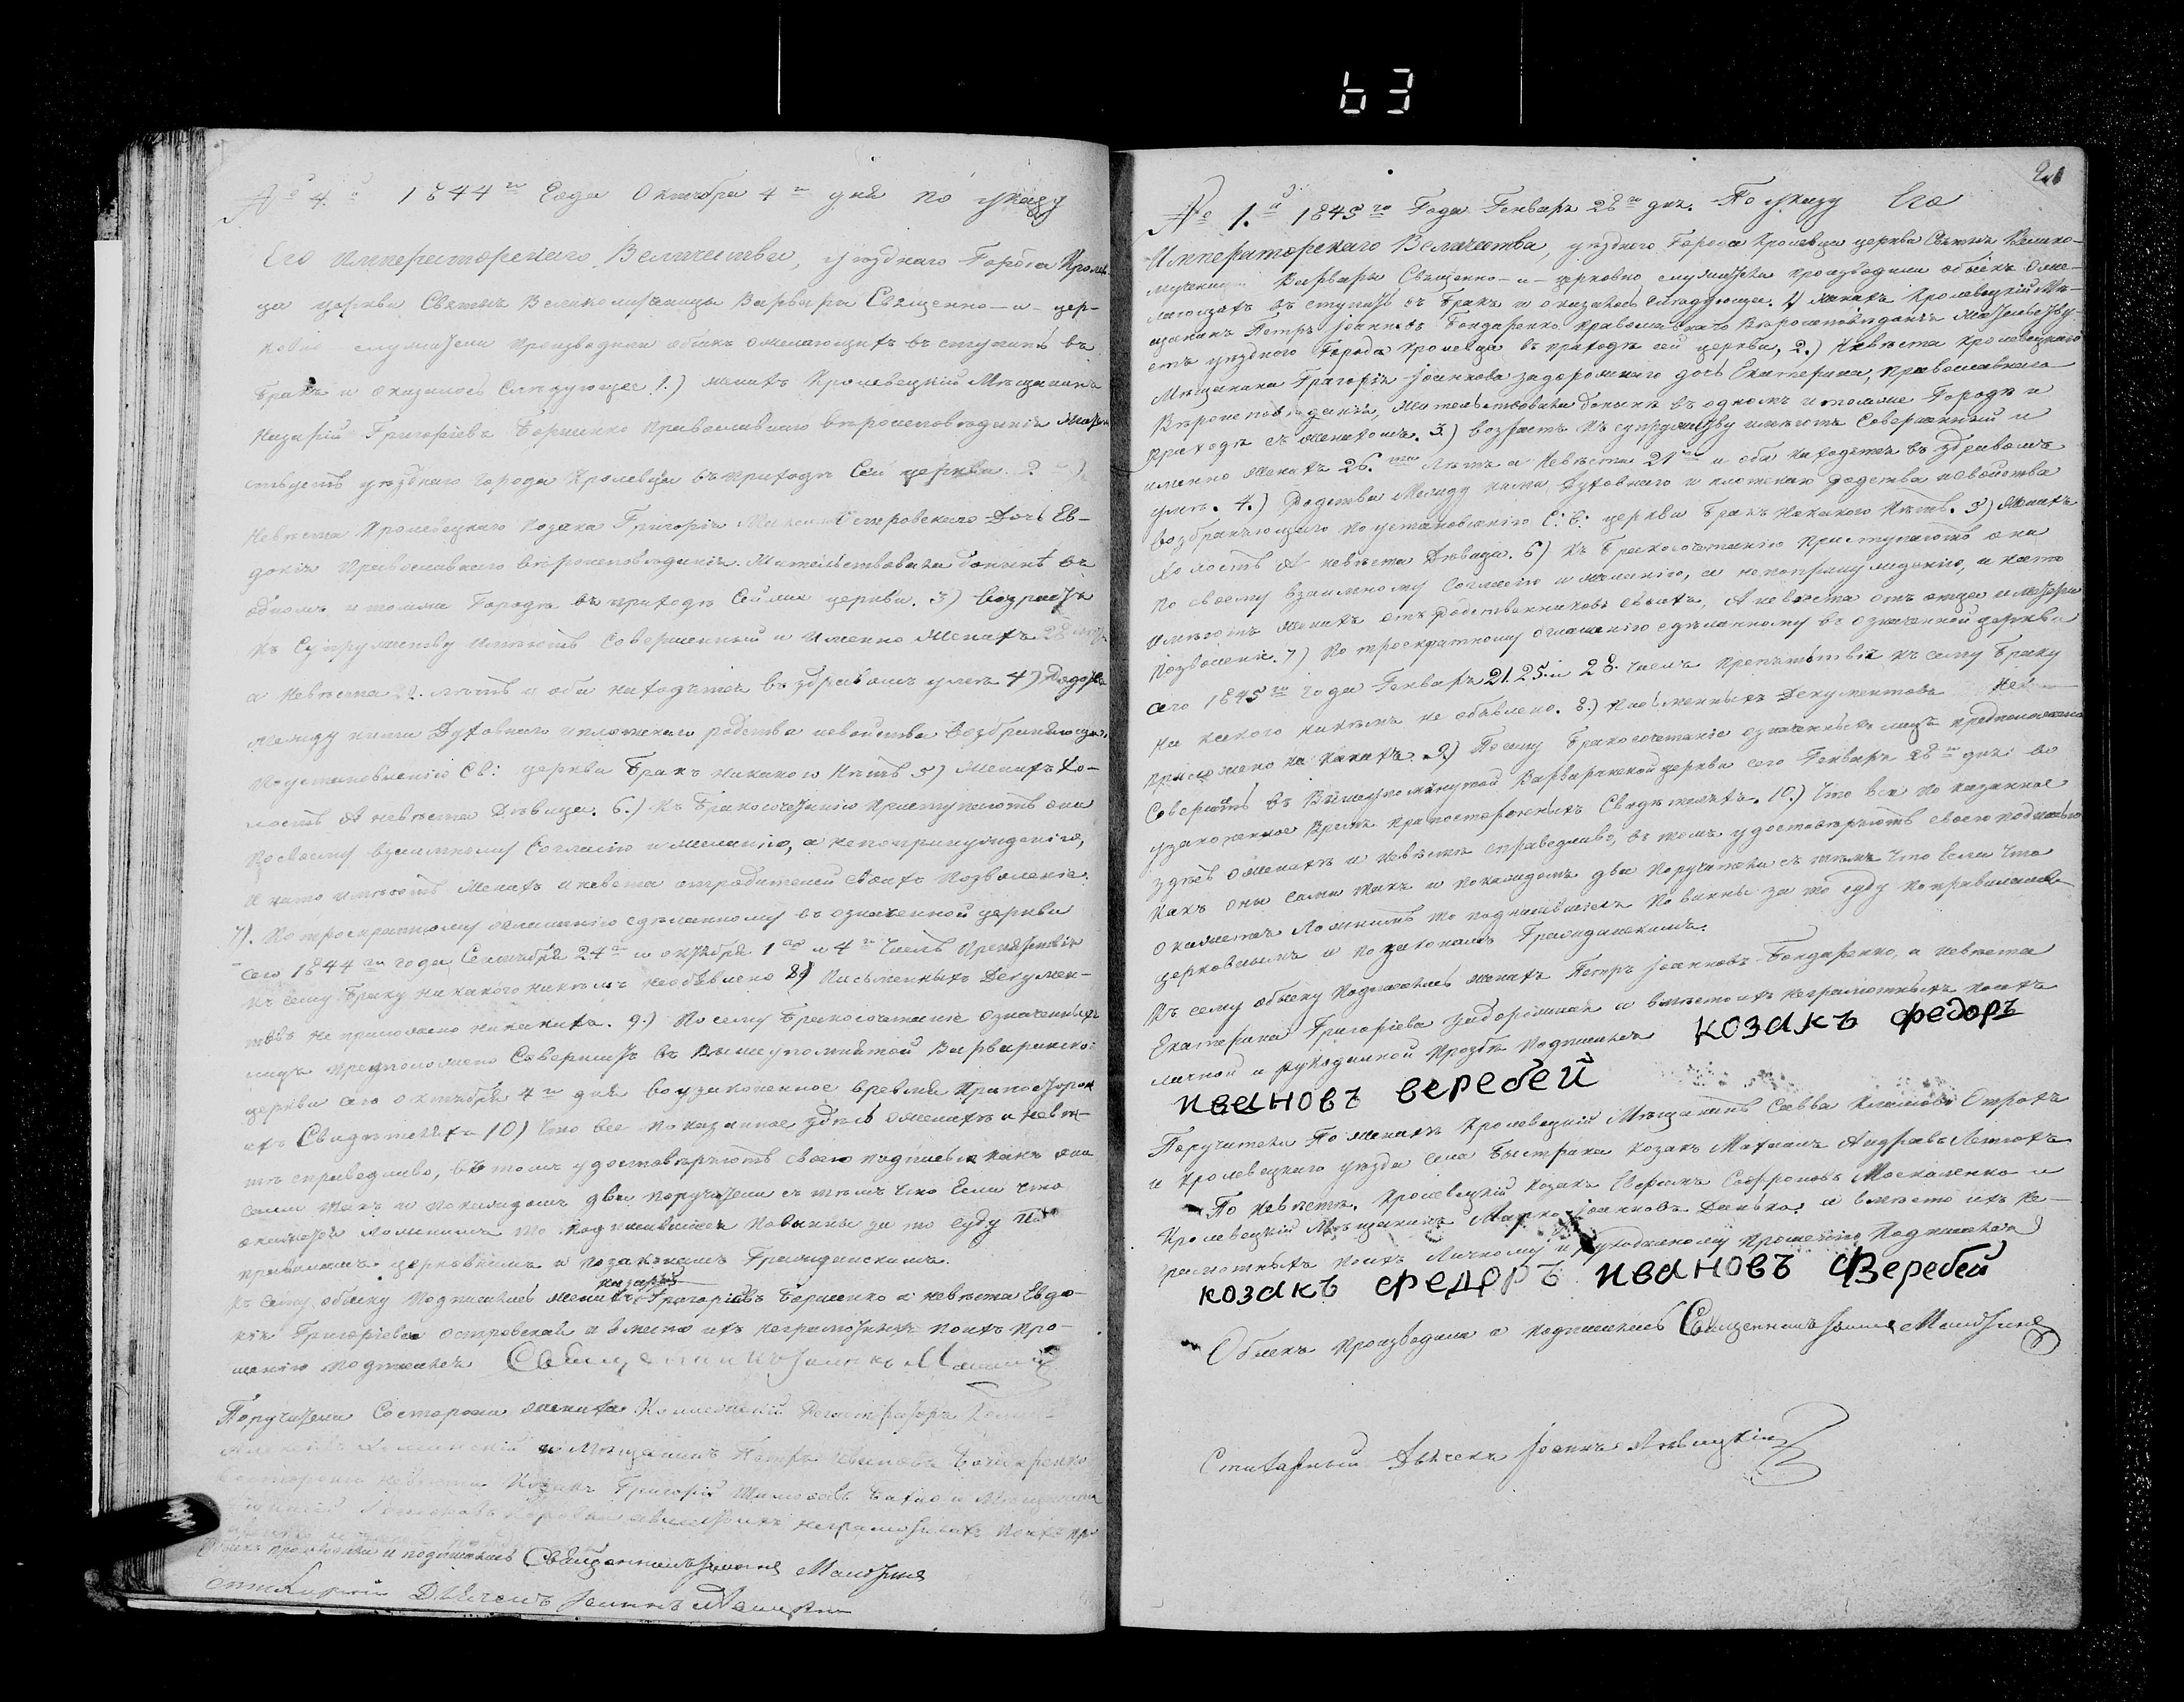 63
№ 4.й 1844го Года Октября 4го дня по указу
Его Императорскаго Величества, уезднаго Города Кролев-
ца церкви Святыя Великомученицы Варвары Священно-и-цер-
ковно служители производили обыск о желающих в ступить въ
бракъ и оказалось Следующее 1.) женихъ Кролевецкій Мещанинъ
Назарій Григоріевъ Борженко православнаго вероисповеданія
ствуетъ уезднаго города Кролевца въ приходе Сей церкви. 2)
Невеста Кролевецкого козака Григорія Островского Дочь Ев-
докія православнаго вероисповеданія. Жительствовала доныне въ
одномъ и томже Городе въ приходе Сей же церкви. 3) Возрастъ
къ Супружеству имеютъ Совершенный и именно Женихъ 28
а Невеста летъ и оба находятся в здравомъ уме 4)
между ними Духовнаго и плотскаго родства и свойства возбраняющаго
по установленію Св: церкви бракъ никакого нетъ 5) Женихъ хо-
лостъ А невеста Девица. 6.) Къ бракосочетанію приступаютъ они
по своему взаимному Согласію и желанію, а не по принужденію,
и на то имеютъ женихъ и невеста от родителей своихъ позволеніе.
7). По троекратному оглашенію сделанному въ означенной церкви
сего 1844го года Сентября 24го и октября 1го и 4го числъ препятствія
къ сему браку никакого никемъ необъявлено 8) Письменныхъ Докумен-
товъ не приложено никакихъ. 9.) Посему бракосочетаніе означенныхъ
лицъ предположено Совершить въ Вышеупомянутой Варваринской
церкви сего октября 4го дня во узаконенное время при посторон
ихъ Свидетеляхъ 10) Что все показанное здесь о женихе и неве-
сте справедливо, въ томъ удостоверяютъ своею подписью какъ они
сами такъ и по каждомъ два поручителя съ темъ что Если что
окажется ложнымъ то подписавшіеся повинны за то суду по
правиламъ церковнымъ и по законамъ Гражданскимъ.
назарій
Къ сему обыску подписались женихъ Григоріевъ Борженко а невеста Евдо-
кія Григоріева островская а вместо ихъ неграмотныхъ поихъ про-
шенію подписался Священникъ
Поручители Состороны жениха
и Мещанинъ Петръ
невесты Козакъ Григорій
неграмотныхъ
Обыск производили и подписались Священникъ
Дьячекъ
№ 1.й 1845го Года Генваря 28го дня. По указу Его
Императорскаго Величества, уезднаго Города Кролевца церкви Святыя Велико-
мученицы Варвары Священно-и-церковно служители производили обыскъ о же-
лающихъ въ ступить въ бракъ и оказалось Следующее. 1) женихъ Кролевецкій Ме-
щанинъ Петръ Іоанновъ Бондаренко православнаго Вероисповеданія Жительству-
етъ уезднаго Города Кролевца въ приходе сей церкви, 2.) Невеста Кролевецкаго
Мещанина Григорія Іоаннова Задорожнаго дочь Екатерина, православнаго
Вероисповеданія, Жительствовала доныне въ одномъ и томже Городе и
приходе съ женихомъ. 3.) возрастъ къ супружеству имеютъ Совершенный и
именно женихъ 26. летъ а Невеста 21 и оба находятся въ здравомъ
уме. 4.) Родства Между ними Духовнаго и плотскаго родства и свойства
возбраняющаго по установленію С: в: церкви бракъ никакого Нетъ. 5) Женихъ
Холостъ А невеста Девица. 6) Къ бракосочетанію приступаютъ они
по своему взаимному Согласію и желанію, а не по принужденію, и на то
имеютъ женихъ отъ родственниковъ своихъ, А невеста отъ отца и матери
позволеніе. 7) По троекратному оглашенію сделанному въ означенной церкви
сего 1845го года Генваря 21. 25. и 28. числъ препятствія къ сему браку
ни какого никемъ не объявлено. 8.) Письменныхъ Документовъ не
приложено ни какихъ. 9.) Посему бракосочетаніе означенныхъ лицъ предположено
Совершить въ Вышеупомянутой Варваринской церкви сего Генваря 28го дня во
узаконенное время при постороннихъ Свидетеляхъ. 10.) Что все по казанное
здесь о женихе и невесте справедливо, въ томъ удостоверяютъ своею подписью
какъ они сами такъ и по каждомъ два поручителя съ темъ что Если что
окажется ложнымъ то подписавшіеся повинны за то суду по правиламъ
церковнымъ и по законамъ Гражданскимъ.
Къ сему обыску подписались женихъ Петръ Іоанновъ Бондаренко, а невеста
Екатерина Григоріева Задорожная а вместо ихъ неграмотныхъ поихъ
личной и рукоданной прозбе подписался козакъ федоръ
ивановъ веребей
Поручители По женихе Кролевецкій Мещанинъ Савва
и Кролевецкаго уезда села Быстрика козакъ
По невесте. Кролевецкій козакъ Ефремъ Софроновъ Москаленко и
Кролевецкій Мещанинъ Марко Іоанновъ Данько. а вместо ихъ не-
грамотныхъ поихъ Личному и рукоданному прошенію подписался
козакъ федоръ ивановъ Веребей
Обыскъ производили и подписались Священникъ
Стихарный Дьячекъ Іоаннъ